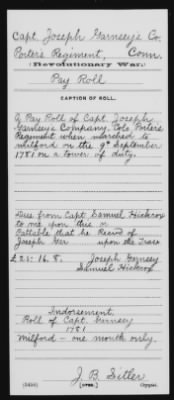 Capt. Joseph Garnsey's Co.
Porter's Regiment, Conn.
(Revolutionary War.)
Pay Roll
CAPTION OF ROLL.
A Pay Roll of Capt Joseph
Garnsey's Company, Colo Porters
Regiment when marched to
Milford on the 9th September
1781 on a tower of duty.
Due from Capt. Samuel Hickcox
to me upon this
Pattable that he Recd of
Joseph upon the
£21: 16. 8. Joseph Garnsey
Samuel Hickcox
Indorsement.
Roll of Capt. Garnsey
1781
Milford - one month only.
J. B. Sitler
(545i) [OVER.] Copyist.